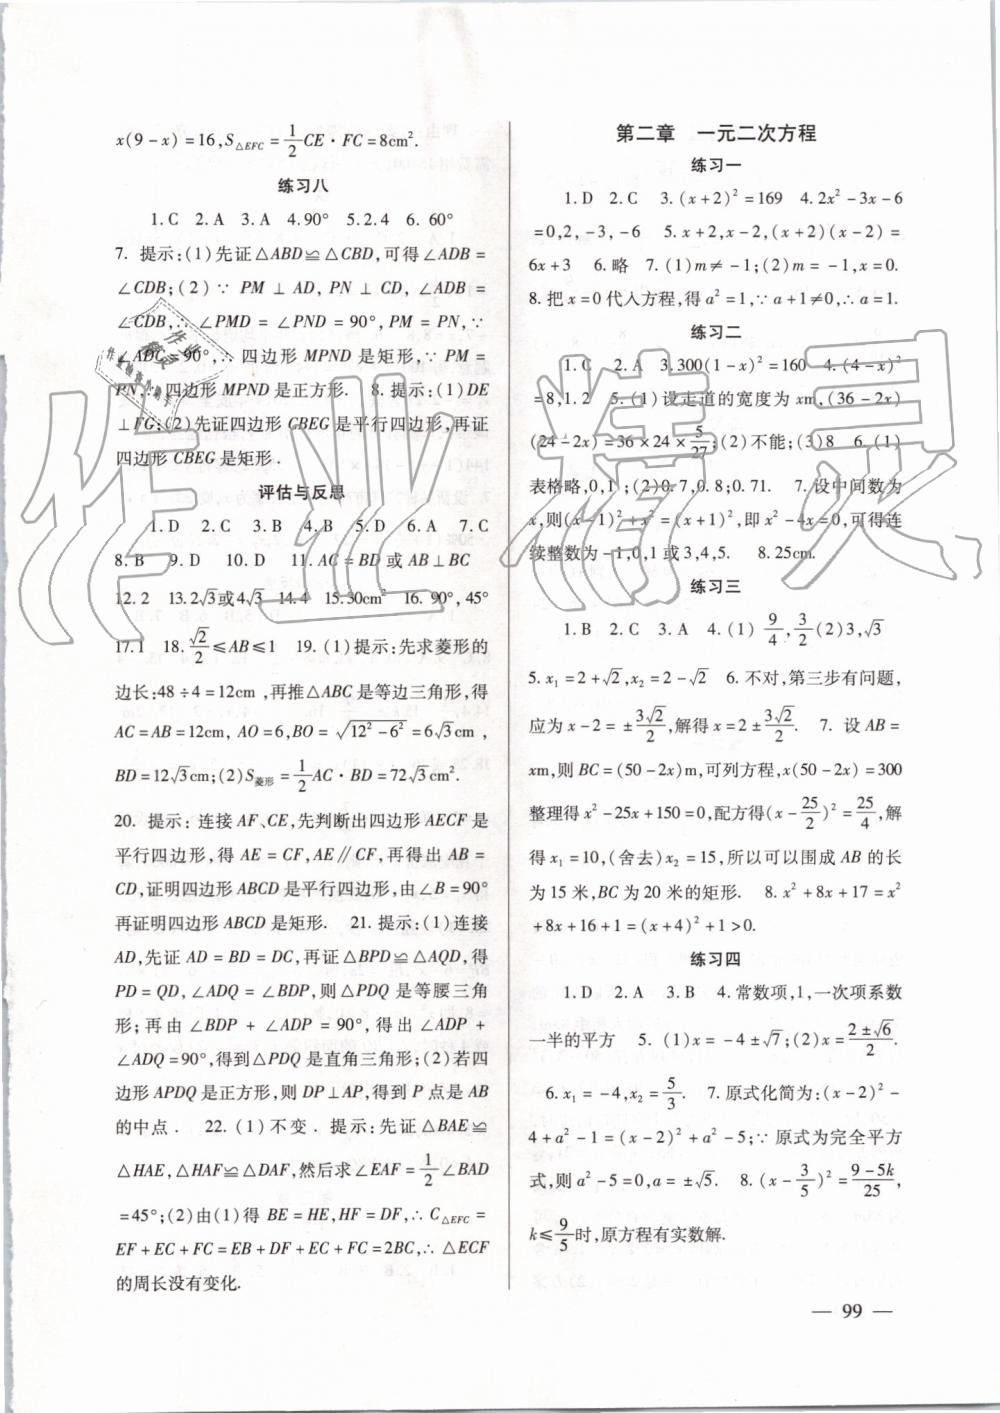 x(9-x)=16,S△EFC=1/2CE·FC=8cm².
练习八
1.C 2.A 3.A 4.90° 5.2.4 6.60°
7. 提示:(1)先证△ABD≌△CBD,可得∠ADB=
∠CDB;(2)∵PM⊥AD,PN⊥CD,∠ADB=
∠CDB,∴∠PMD=∠PND=90°,PM=PN,∵
∠ADC=90°,∴四边形MPND是矩形,∵PM=
PN,∴四边形MPND是正方形. 8. 提示:(1)DE
⊥FG;(2)先证四边形CBEG是平行四边形,再证
四边形CBEG是矩形.
评估与反思
1.D 2.C 3.B 4.B 5.D 6.A 7.C
8.B 9.D 10.D 11.AC=BD或AB⊥BC
12.2 13.2√3或4√3 14.4 15.30cm² 16.90°,45°
17.1 18.√2/2≤AB≤1 19.(1)提示:先求菱形的
边长:48÷4=12cm,再推△ABC是等边三角形,得
AC=AB=12cm,AO=6,BO=√(12²-6²)=6√3cm,
BD=12√3cm;(2)S菱形=1/2AC·BD=72√3cm².
20. 提示:连接AF、CE,先判断出四边形AECF是
平行四边形,得AE=CF,AE∥CF,再得出AB=
CD,证明四边形ABCD是平行四边形,由∠B=90°
再证明四边形ABCD是矩形. 21. 提示:(1)连接
AD,先证AD=BD=DC,再证△BPD≌△AQD,得
PD=QD,∠ADQ=∠BDP,则△PDQ是等腰三角
形;再由∠BDP+∠ADP=90°,得出∠ADP+
∠ADQ=90°,得到△PDQ是直角三角形;(2)若四
边形APDQ是正方形,则DP⊥AP,得到P点是AB
的中点. 22.(1)不变. 提示:先证△BAE≌
△HAE,△HAF≌△DAF,然后求∠EAF=1/2∠BAD
=45°;(2)由(1)得BE=HE,HF=DF,∴C△EFC=
EF+EC+FC=EB+DF+EC+FC=2BC,∴△ECF
的周长没有变化.
第二章 一元二次方程
练习一
1.D 2.C 3.(x+2)²=169 4.2x²-3x-6
=0,2,-3,-6 5.x+2,x-2,(x+2)(x-2)=
6x+3 6.略 7.(1)m≠-1;(2)m=-1,x=0.
8. 把x=0代入方程,得a²=1,∵a+1≠0,∴a=1.
练习二
1.C 2.A 3.300(1-x)²=160 4.(4-x)²
=8,1.2 5.(1)设走道的宽度为xm,(36-2x)
(24-2x)=36×24×5/27;(2)不能;(3)8 6.(1)
表格略,0,1;(2)0.7,0.8;0.71. 7. 设中间数为
x,则(x-1)²+x²=(x+1)²,即x²-4x=0,可得连
续整数为-1,0,1或3,4,5. 8.25cm.
练习三
1.B 2.C 3.A 4.(1)9/4,3/2(2)3,√3
5.x₁=2+√2,x₂=2-√2 6. 不对,第三步有问题,
应为x-2=±3√2/2,解得x=2±3√2/2. 7. 设AB=
xm,则BC=(50-2x)m,可列方程,x(50-2x)=300
整理得x²-25x+150=0,配方得(x-25/2)²=25/4,解
得x₁=10,(舍去)x₂=15,所以可以围成AB的长
为15米,BC为20米的矩形. 8.x²+8x+17=x²
+8x+16+1=(x+4)²+1>0.
练习四
1.D 2.A 3.B 4. 常数项,1,一次项系数
一半的平方 5.(1)x=-4±√7;(2)x=(2±√6)/2.
6.x₁=-4,x₂=5/3. 7. 原式化简为:(x-2)²-
4+a²-1=(x-2)²+a²-5;∵原式为完全平方
式,则a²-5=0,a=±√5. 8.(x-3/5)²=(9-5k)/25,
k≤9/5时,原方程有实数解.
— 99 —
作业精灵